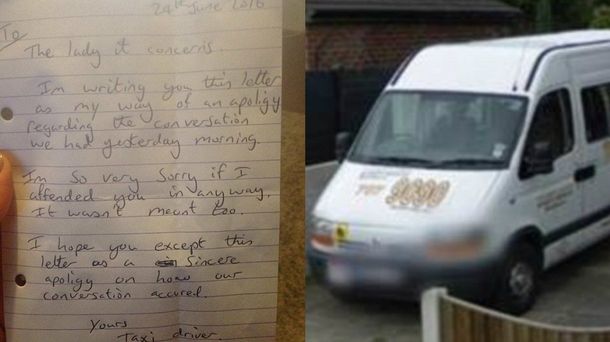 24th June 2016
To
The lady it concerns.
Im writing you this letter
as my way of an apoligy
regarding the conversation
we had yesterday morning.
Im so very sorry if I
affended you in anyway,
It wasn't meant too.
I hope you except this
letter as a sincere
apoligy on how our
conversation accured.
Yours
Taxi driver.
9000